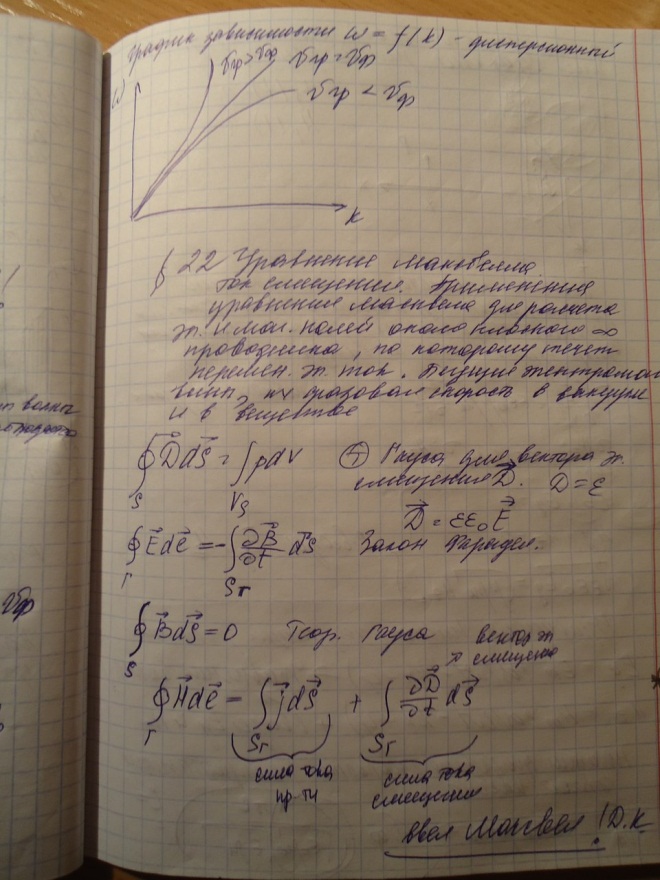 График зависимости ω = f(k) - дисперсионный
ω
vгр>vф
vгр=vф
vгр < vф
k
§ 22 Уравнение Максвелла
ток смещения. Применение
уравнение Максвела для расчета
эл. и маг. полей около плоского ∞
проводника, по которому течет
перемен. эл. ток. Бегущие электромаг
их фазовая скорость в вакууме
и в веществе
ф
∮D⃗dS⃗ = ∫ρdV
S VS
Ⓣ Гауса для вектора эл.
смещения D⃗. D=ε
D⃗ = εε₀E⃗
∮E⃗dℓ⃗ = -∫∂B⃗/∂t dS⃗ Закон Фарадея.
Г SГ
vф
∮B⃗dS⃗ = 0 Теор. Гауса
S
вектор эл
смещения
∮H⃗dℓ⃗ = ∫j⃗dS⃗ + ∫∂D⃗/∂t dS⃗
Г SГ SГ
сила тока
пр-ти
сила тока
смещения
ввел Максвел ! D.K